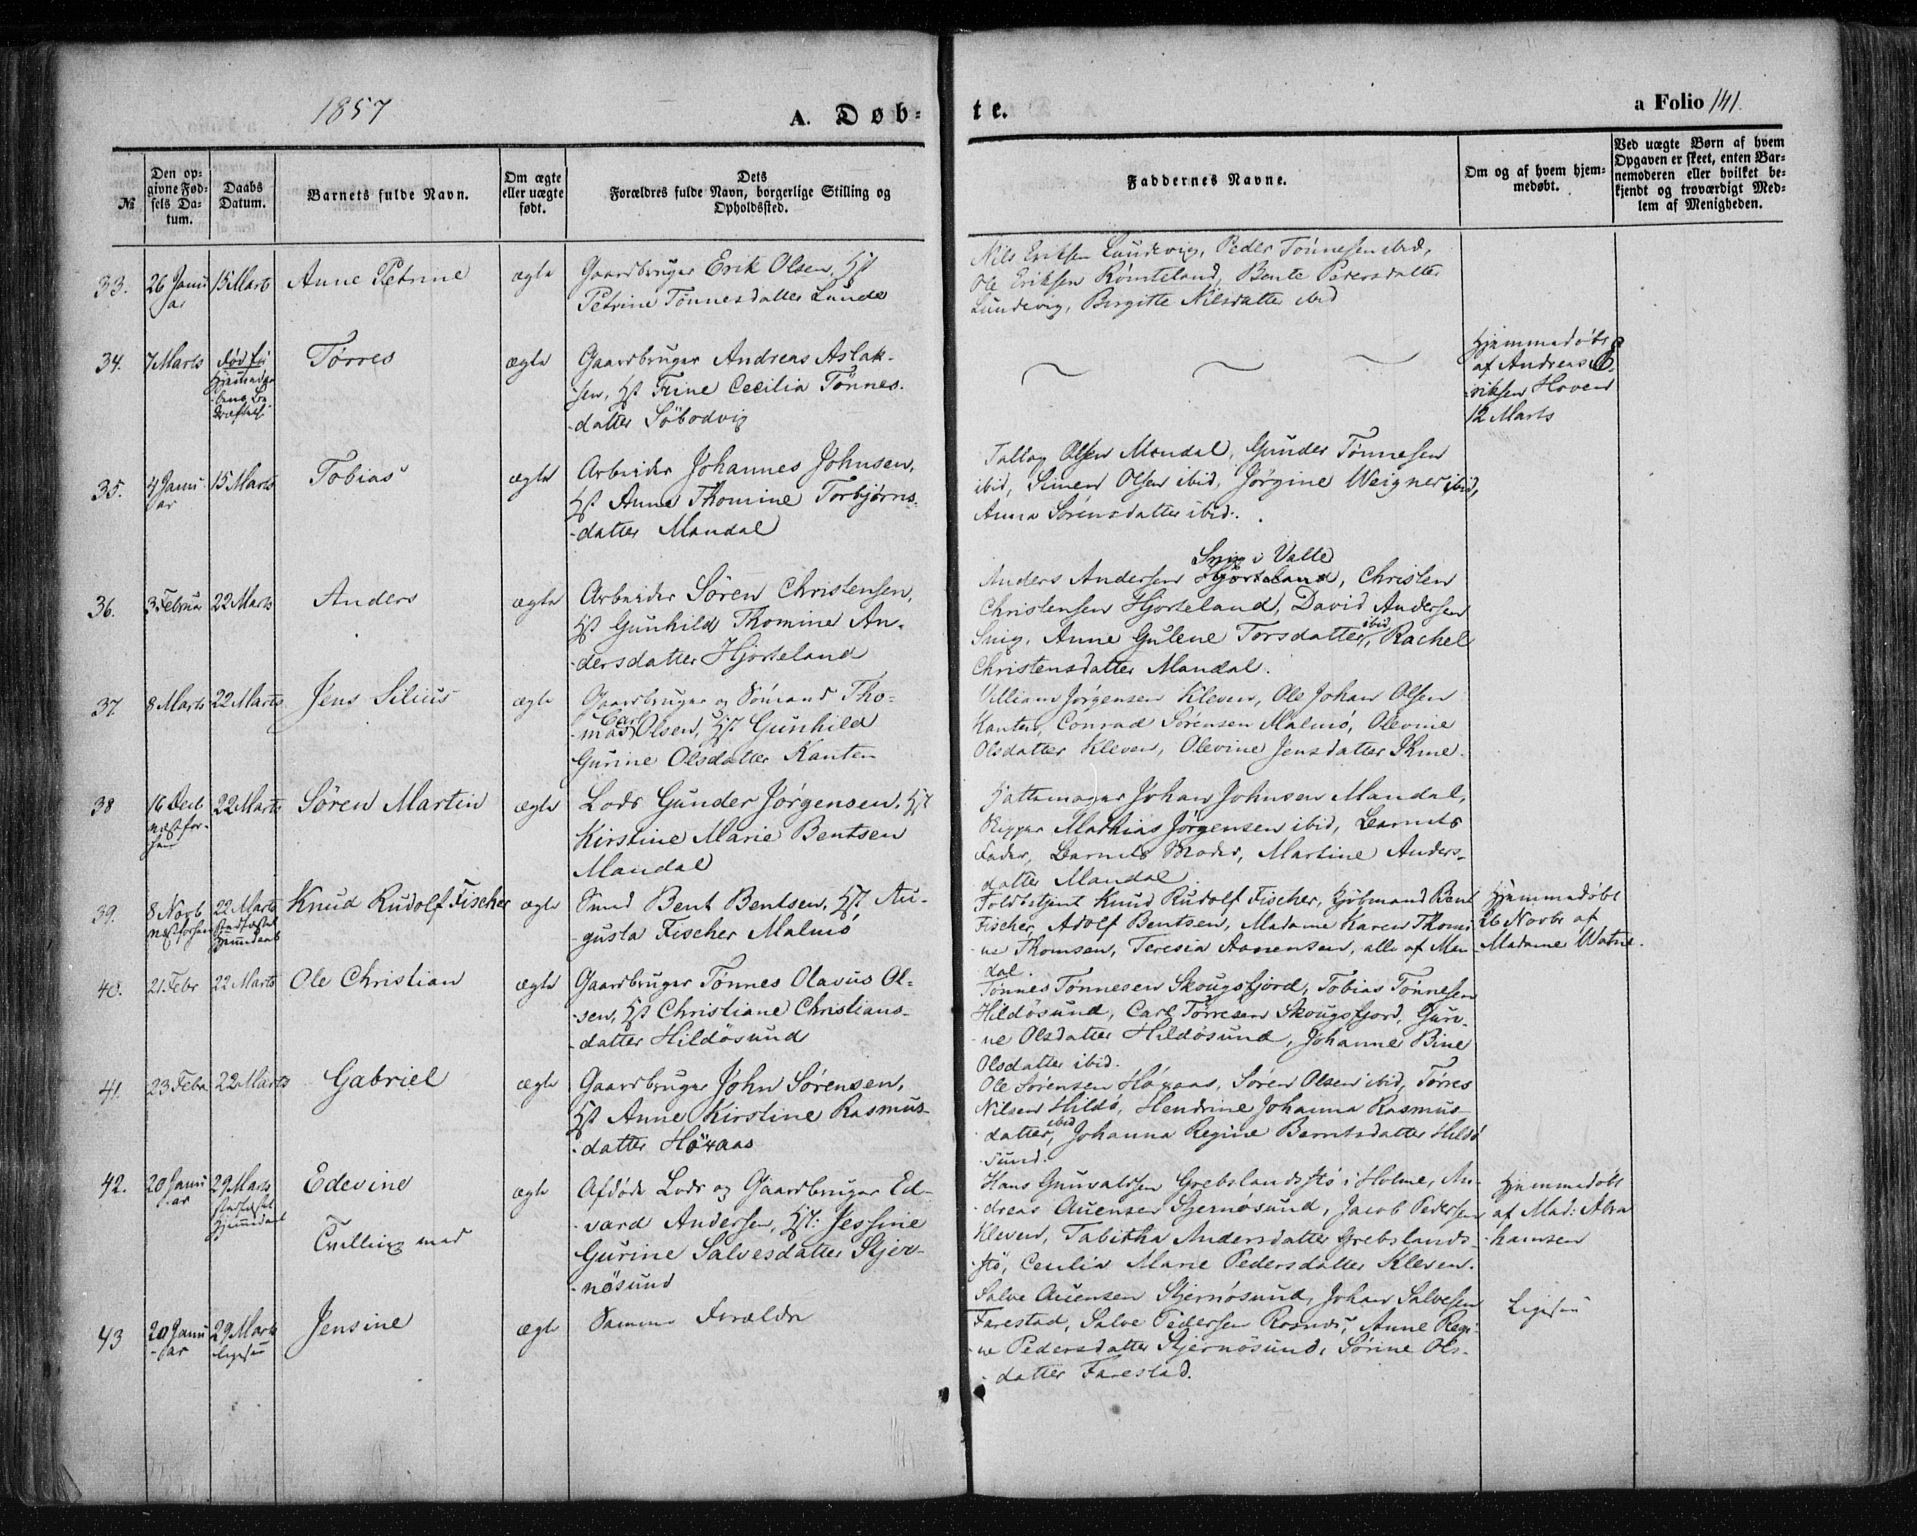 1857
A. Døb-
te.
a Folio 141.
№
Den op-
givne Fød-
sels Da-
tum.
Daabs
Datum.
Barnets fulde Navn.
Om ægte
eller uægte
født.
Dets
Forældres fulde Navn, borgerlige Stilling og
Opholdssted.
Faddernes Navne.
Om og af hvem hjem-
medøbt.
Ved uægte Børn af hvem
Opgaven er skeet, enten Bar-
nemoderen eller hvilket be-
kjendt og troværdigt Med-
lem af Menigheden.
33.
26 Janu
ar
15 Marts
Anne Petrine
ægte
Gaardbruger Erik Olsen, Hst
Petrine Tönnesdatter Lunde
Nils Eriksen Lundevig, Peder Tönnesen ibid,
Ole Eriksen Römteland, Bente Pedersdatter
Lundevig, Birgitte Nilsdatter ibid
34.
7 Marts
Død før
Tørres
ægte
Gaardbruger Andreas Aslak-
sen, Hst Trine Cecilia Tönnes-
datter Söbodvig
Hjemmedøbt
af Andreas
-riksen Hoven
12 Marts
35.
4 Janu
ar
15 Marts
Tobias
ægte
Arbeider Johannes Johnsen,
Hst Anne Thomine Torbjørns-
datter Mandal
Tallag Olsen Mandal, Gunder Tønnesen
ibid, Simen Olsen ibid, Jørgine Weigner ibid,
Anna Sörensdatter ibid.
36.
3 Februa
22 Marts
Anders
ægte
Arbeider Søren Christensen,
Hst Gunhild Thomine An-
dersdatter Hjorteland
Snig i Valle
Anders Andersen Hjorteland, Christen
Christensen Hjorteland, David Andersen
Snig, Anne Gulene Torsdatter ibid, Rachel
Christensdatter Mandal.
37.
8 Marts
22 Marts
Jens Silius
ægte
Gaardbruger og Sömand Tho-
mas Carl Olsen, Hst Gunhild
Gurine Olsdatter Kanten
Villiam Jørgensen Kleven, Ole Johan Olsen
Kanten, Conrad Sörensen Malmö, Olevine
Olsdatter Kleven, Olevine Jensdatter
38
16 Decb
næstfor-
hen
22 Marts
Sören Martin
ægte
Lods Gunder Jørgensen, Hst
Kirstine Marie Bentsen
Mandal
Hattemager Johan Johnsen Mandal,
Skipper Mathias Jørgensen ibid, Barnets
Fader, Barnets Moder, Martine Anders-
datter Mandal.
39.
8 Novb
næstforhen
22 Marts
stadfæstet
Hjemmedaab
Knud Rudolf Fischer
ægte
Smed Bent Bentsen, Hst Au-
gusta Fischer Malmö
Toldbetjent Knud Rudolf Fischer, Kjöbmand Bent
Fischer, Adolf Bentsen, Madame Karen Thomi
ne Thomsen, Teresia Aanensen, alle af Man-
dal.
Hjemmedøbt
26 Novbr af
Madame Watne.
40.
21. Febr
22 Marts
Ole Christian
ægte
Gaardbruger Tönnes Olavus Ol-
sen, Hst Christiane Christians-
datter Hildösund
Tönnes Tönnesen Skougsfjord, Tobias Tönnesen
Hildösund, Carl Törresen Skougsfjord, Guri-
ne Olsdatter Hildösund, Johanne Bine
Olsdatter ibid.
41.
23 Febr
22 Marts
Gabriel
ægte
Gaardbruger John Sørensen,
Hst Anne Kirstine Rasmus-
datter Høxaas
Ole Sørensen Høxaas, Søren Olsen ibid, Tørres
Nilsen Hildö, Hendrine Johanna Rasmus-
datter ibid, Johanna Regine Berntsdatter Hildö
sund.
42.
20 Janu
ar
29 Marts
stadfæstet
Hjemmedaab
Edevine
Tvilling med
ægte
Afdöde Lods og Gaardbruger Ed-
vard Andersen, Hst: Jessine
Gurine Salvesdatter Skjer-
nösund
Hans Gunvaldsen Grebslandsstö i Holme, An-
dreas Auensen Skjernösund, Jacob Pedersen
Kleven, Tabitha Andersdatter Grebslands-
stö, Cecilia Marie Pedersdatter Kleven.
Hjemmedøbt
af Mad: Abra
hamsen
43
20 Janu
ar
29 Marts
ligesaa
Jensine
ægte
Samme Forældre
Salve Auensen Skjernösund, Johan Salvesen
Farestad, Salve Pedersen Rosnes, Anne Regi-
ne Pedersdatter Skjernösund, Sörine Ols-
datter Farestad.
Ligesaa